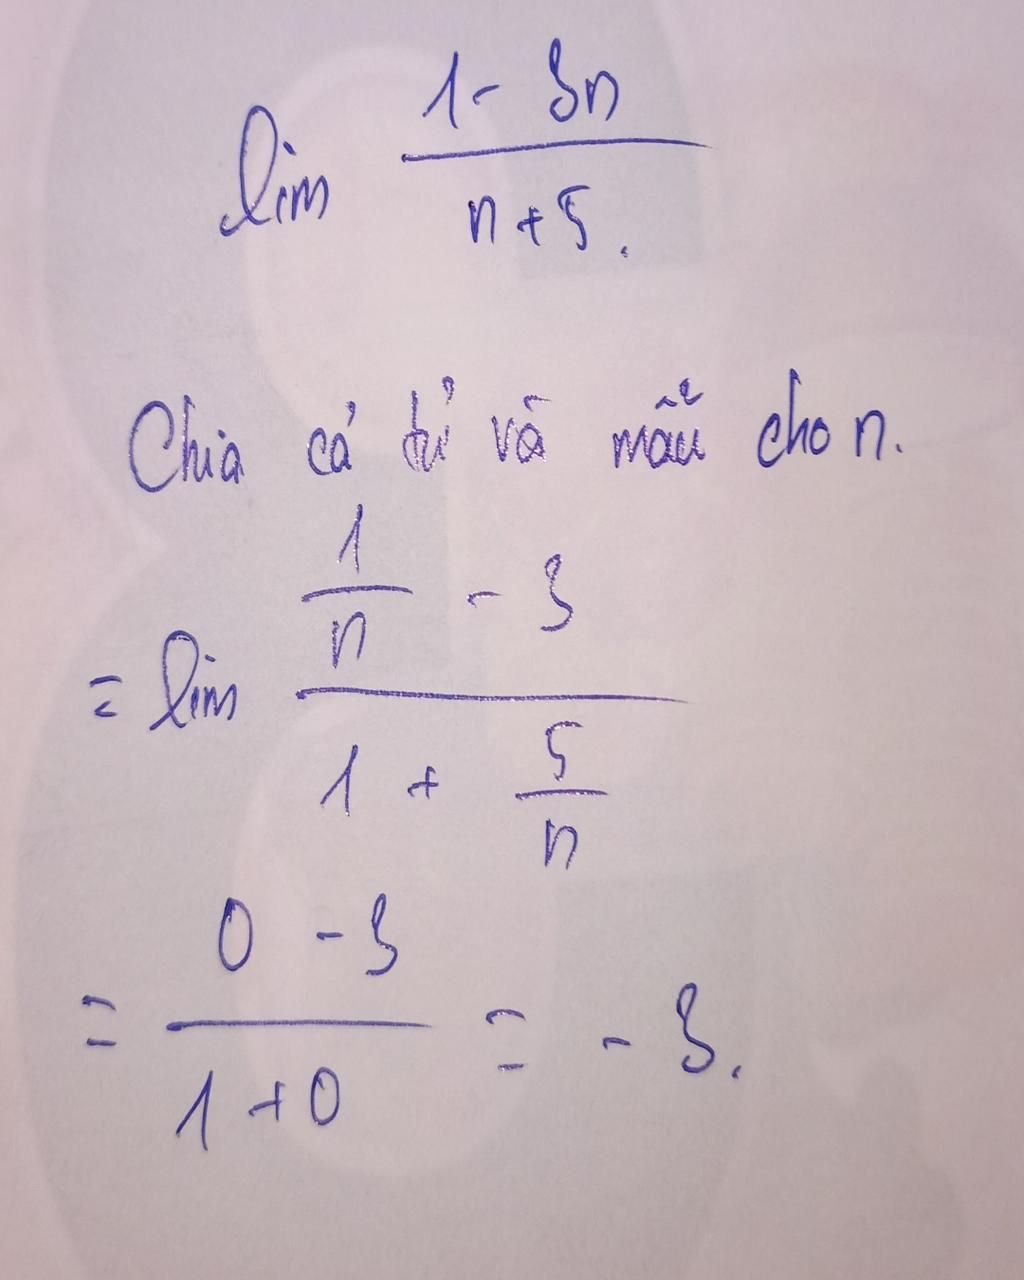 lim \frac{1 - 3n}{n + 5}.
Chia cả tử và mẫu cho n.
= lim \frac{\frac{1}{n} - 3}{1 + \frac{5}{n}}
= \frac{0 - 3}{1 + 0} = -3.